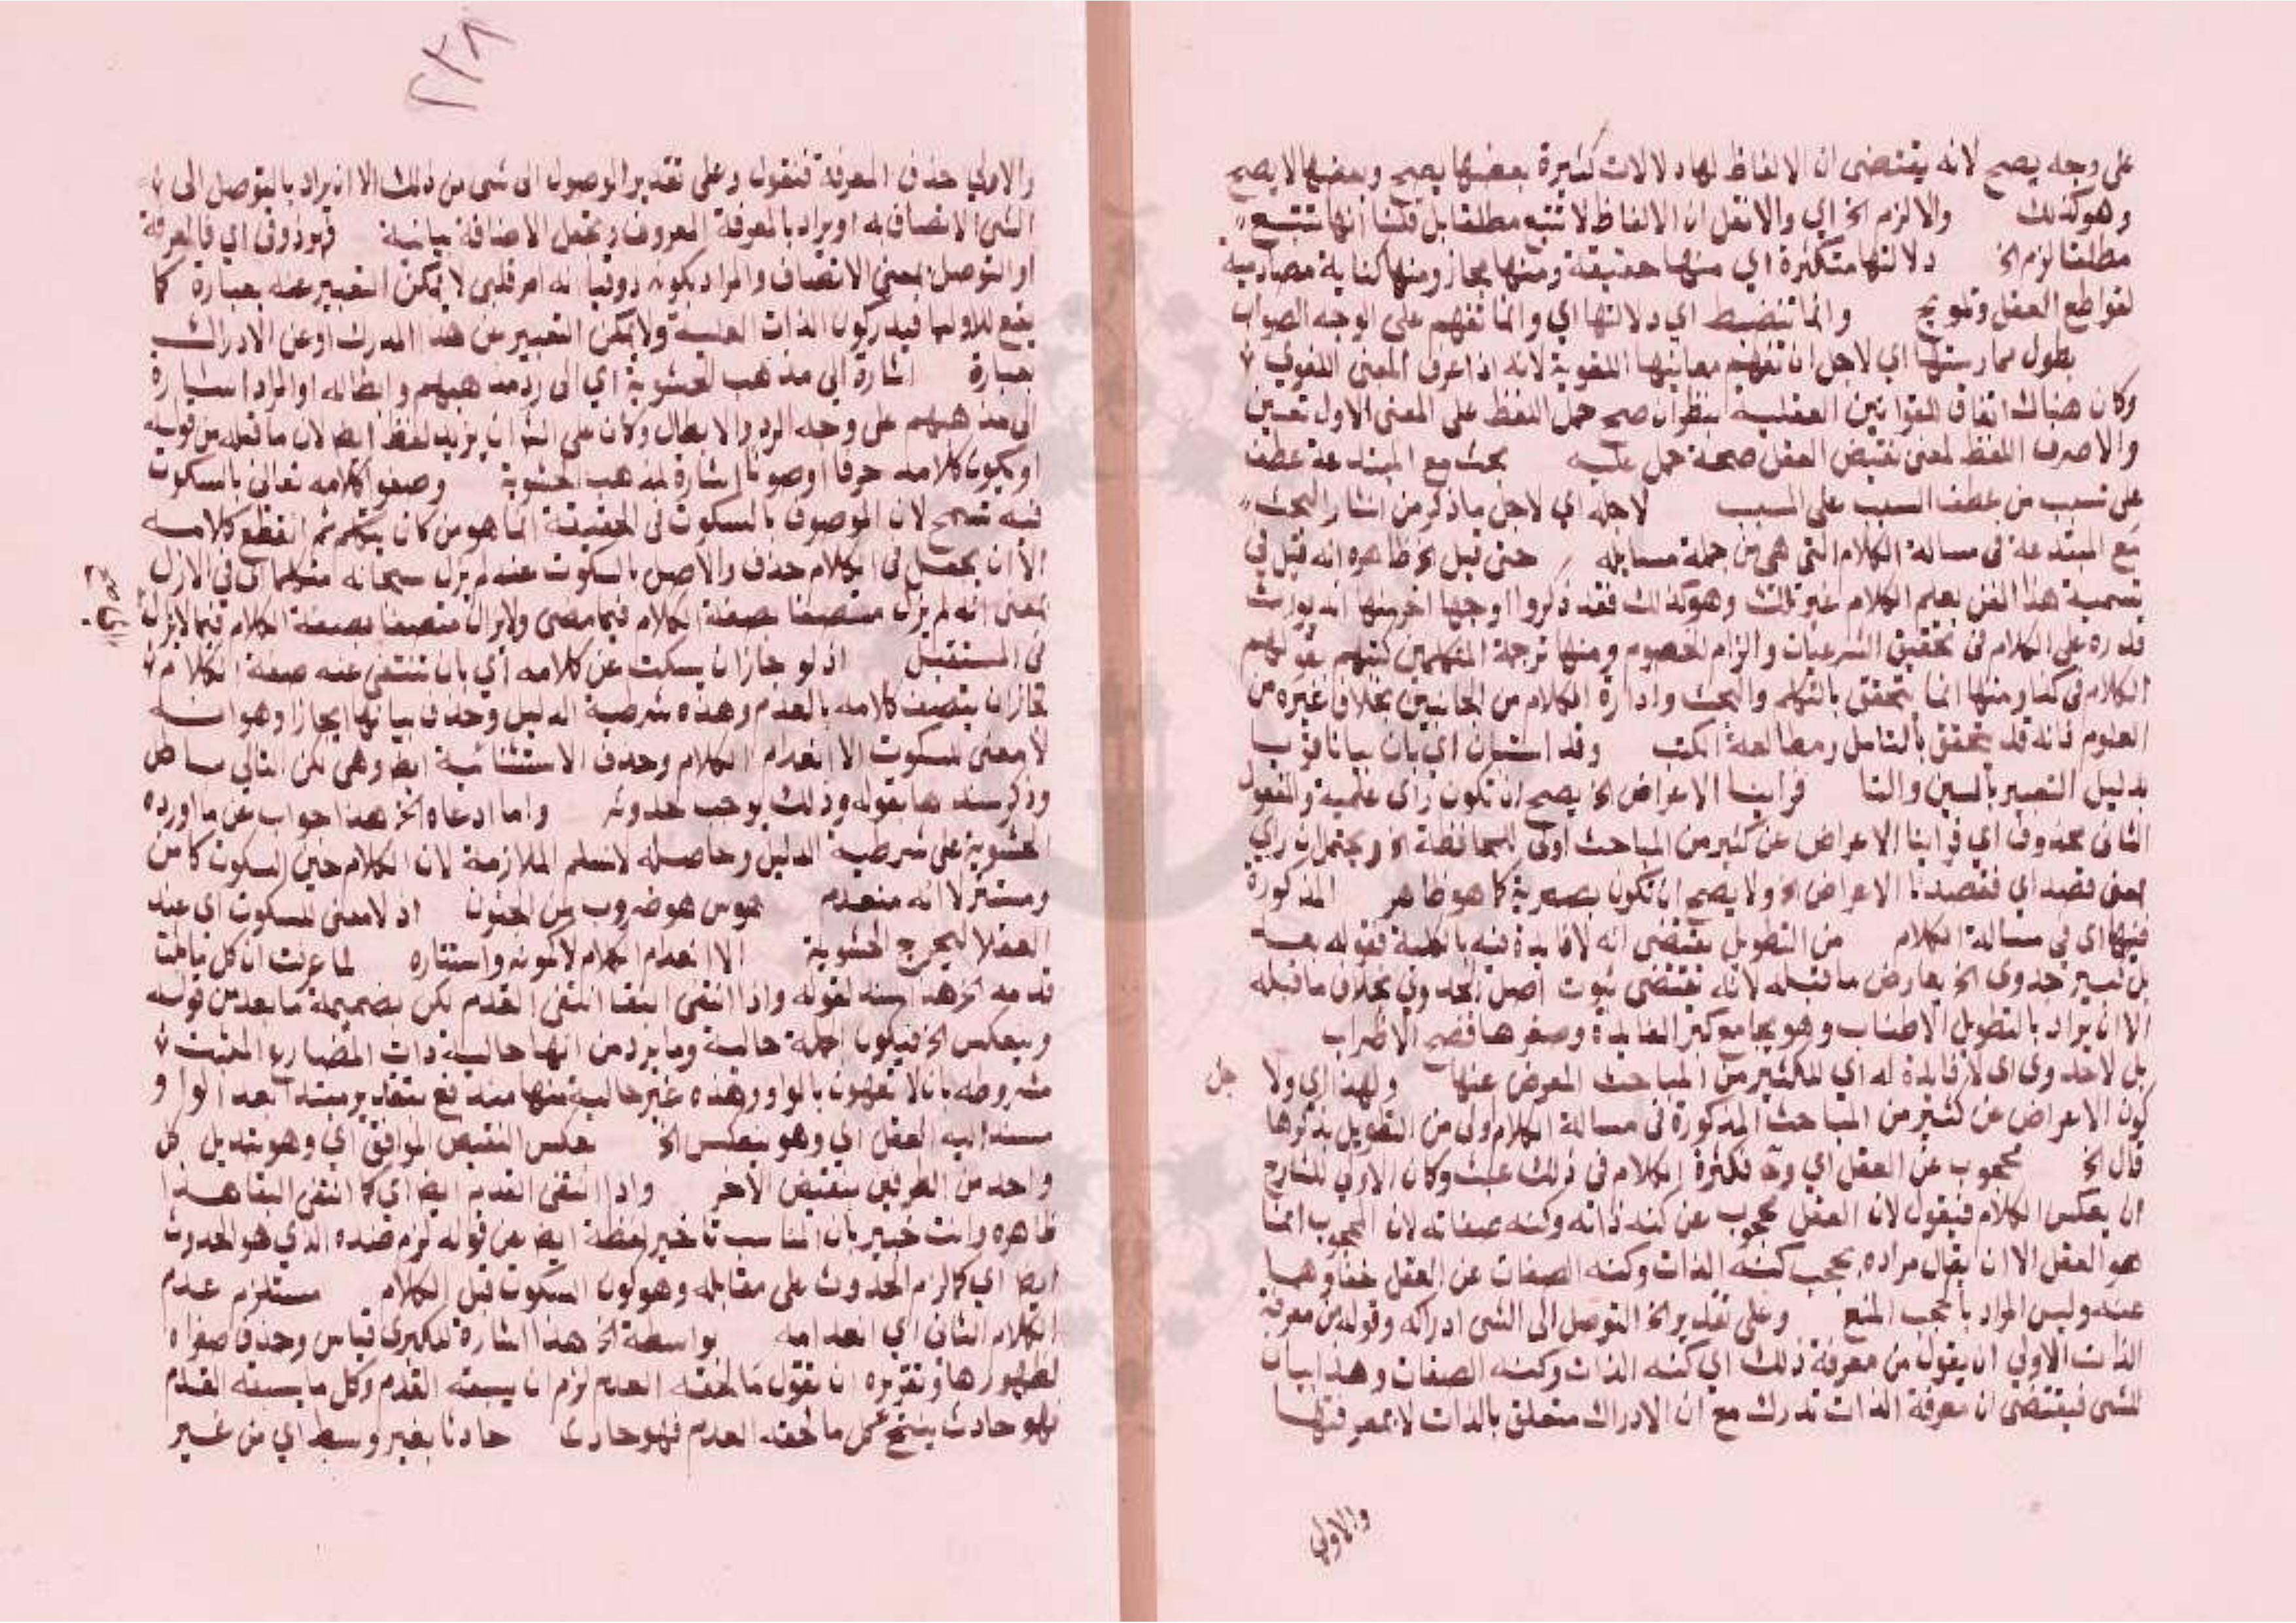 على وجه يصح لانه يقتضى ان الالفاظ لها دلالات كثيرة بعضها يصح وبعضها لا يصح
وهو كذلك والا لزم الخ اي والا نقل ان الالفاظ لا تتبع مطلقا بل قلنا انها تتبع
مطلقا لزم الخ دلالتها متكثرة اي منها حقيقة ومنها مجاز ومنها كناية مصادمة
لقواطع العقل وتلويح وانما تنضبط اي دلالتها اي وانما تفهم على الوجه الصواب
بطول ممارستها اي لاجل ان تفهم معانيها اللغوية لانه اذا عرف المعنى اللغوي
وكان هناك اتفاق القوانين العقلية ينظر ان صح حمل اللفظ على المعنى الاول تعين
والا صرف اللفظ لمعنى يقتضي العقل صحة حمل عليه بحث مع المبتدعة عطف
على تسبب من عطف السبب على المسبب لاجله اي لاجل ما ذكر من انتشار البحث
مع المبتدعة في مسالة الكلام التي هي من جملة مسايله حتى قيل الخ ظاهره انه قيل في
تسمية هذا الفن بعلم الكلام غير ذلك وهو كذلك فقد ذكروا اوجها اخر منها انه يورث
قدرة على الكلام في تحقيق الشرعيات والزام الخصوم ومنها ترجمة المتكلمين كتبهم بقولهم
الكلام في كذا ومنها انما يتحقق بالتكلم والبحث وادارة الكلام من الجانبين بخلاف غيره من
العلوم فانه قد يتحقق بالتامل ومطالعة الكتب وقد استبان اي بان بيانا قريبا
بدليل التعبير بالسين والتا فراينا الاعراض الخ يصح ان تكون راى علمية والمفعول
الثاني محذوف اي فراينا الاعراض عن كثير من المباحث اولى للمحافظة الخ ويحتمل ان راي
بمعنى قصد اي فقصدنا الاعراض الخ ولا يصح ان تكون بصرية كما هو ظاهر المذكورة
فيها اي في مسالة الكلام من التطويل يقتضى انه لا فايدة فيه بالكلية فقوله بعد
بل كبير جدوى الخ يعارض ما قبله لانه يقتضى ثبوت اصل الجدوى بخلاف ما قبله
الا ان يراد بالتطويل الاطناب وهو يجامع كبر الفايدة وصغرها فصح الاضراب
بل لا جدوى اى لا فايدة له اي للكثير من المباحث المعرض عنها ولهذا اي ولا
جل
كون الاعراض عن كثير من المباحث المذكورة في مسالة الكلام اولى من التطويل بذكرها
قال الخ محجوب عن العقل اي وح فكثرة الكلام في ذلك عبث وكان الاولى للشارح
ان يعكس الكلام فيقول لان العقل محجوب عن كنه ذاته وكنه صفاته لان المحجوب انما
هو العقل الا ان يقال مراده بحجب كنه الذات وكنه الصفات عن العقل خفاوهما
عنه وليس المراد بالحجب المنع وعلى تقدير الخ التوصل الى الشى ادراكه وقوله من معرفة
الذات الاولى ان يقول من معرفة ذلك اي كنه الذات وكنه الصفات وهذا بيان
للشى فيقتضى ان معرفة الذات تدرك مع ان الادراك متعلق بالذات لا بمعرفتها
والاولى
٢٣٨
والاولى حذف المعرفة فنقول وعلى تقدير الوصول الى شى من ذلك الا ان يراد بالتوصل الى
الشى الاتصاف به او يراد بالمعرفة المعروف وتجعل الاضافة بيانية فهو ذوقى اي فالمعرفة
او التوصل بمعنى الاتصاف والمراد بكونه ذوقيا انه امر قلبى لا يمكن التعبير عنه بعبارة كما
يقع للاوليا فيدركون الذات العلية ولا يمكن التعبير عن هذا المدرك او عن الادراك
بعبارة اشارة الى مذهب الحشوية اي الى رد مذهبهم وابطاله او المراد اشارة
الى مذهبهم على وجه الرد والابطال وكان على الش ان يزيد لفظ ايضا لان ما قبله من قوله
او يكون كلامه حرفا او صوتا اشارة لمذهب الحشوية وصفوا كلامه تعالى بالسكوت
فيه تسمح لان الموصوف بالسكوت في الحقيقة انما هو من كان يتكلم ثم انقطع كلامه
الا ان يجعل في الكلام حذف والاصل بالسكوت عنه لم يزل سبحانه متكلما اى في الازل
بمعنى انه لم يزل متصفا بصفة الكلام فيما مضى ولا يزال متصفا بصفة الكلام فيما لا يزال
في المستقبل اذ لو جاز ان يسكت عن كلامه اي بان تنتفى عنه صفة الكلام
لجاز ان يتصف كلامه بالعدم وهذه شرطية الدليل وحذف بيانها ايجازا وهو انه
لا معنى للسكوت الا انعدام الكلام وحذف الاستثنائية ايضا وهى لكن التالي باطل
وذكر سندها بقوله وذلك يوجب حدوثه واما ادعاه الخ هذا جواب عن ما اورده
الحشوية على شرطية الدليل وحاصله لا نسلم الملازمة لان الكلام حين السكوت كامن
ومستتر لا انه منعدم هوس هو ضروب من الجنون اذ لا معنى للسكوت اي عند
العقلا ليخرج الحشوية الا انعدام الكلام لا كمونه واستتاره لما عرفت ان كل ما ثبت
قدمه الخ هذا سند لقوله واذا انتفى البقا انتفى القدم لكن بضميمة ما بعد من قوله
وبعكس الخ فيكون جملة حالية وما يرد من انها حالية ذات المضارع المثبت
مشروطة بان لا تقترن بالواو وهذه غير خالية منها منه فع بتقدير مبتدا بعد الواو
مسند اليه الفعل اي وهو ينعكس الخ بعكس النقيض الموافق اي وهو تبديل كل
واحد من الطرفين بنقيض الاخر واذا انتفى القدم ايضا اي كما انتفى البقا هذا
ظاهره وانت خبير بان المناسب تاخير لفظة ايضا عن قوله لزم ضده الذي هو الحدوث
ايضا اي كما لزم الحدوث على مقابله وهو كون السكوت قبل الكلام مستلزم عدم
الكلام الثاني اي انعدامه بواسطة الخ هذا اشارة لكبرى قياس وحذف صغراه
لظهورها وتقريره ان نقول ما لحقه العدم لزم ان يسبقه العدم وكل ما يسبقه العدم
فهو حادث ينتج كل ما لحقه العدم فهو حادث حادثا بغير وسط اي من غير